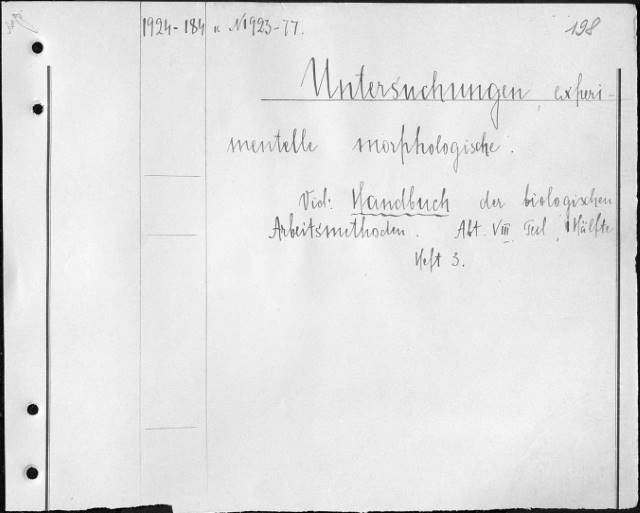 1924-184 u N1923-77.
198
Untersuchungen, experi-
mentelle morphologische.
Vid: Handbuch der biologischen
Arbeitsmethoden. Abt. VIII, Teil, Hälfte
Heft 3.